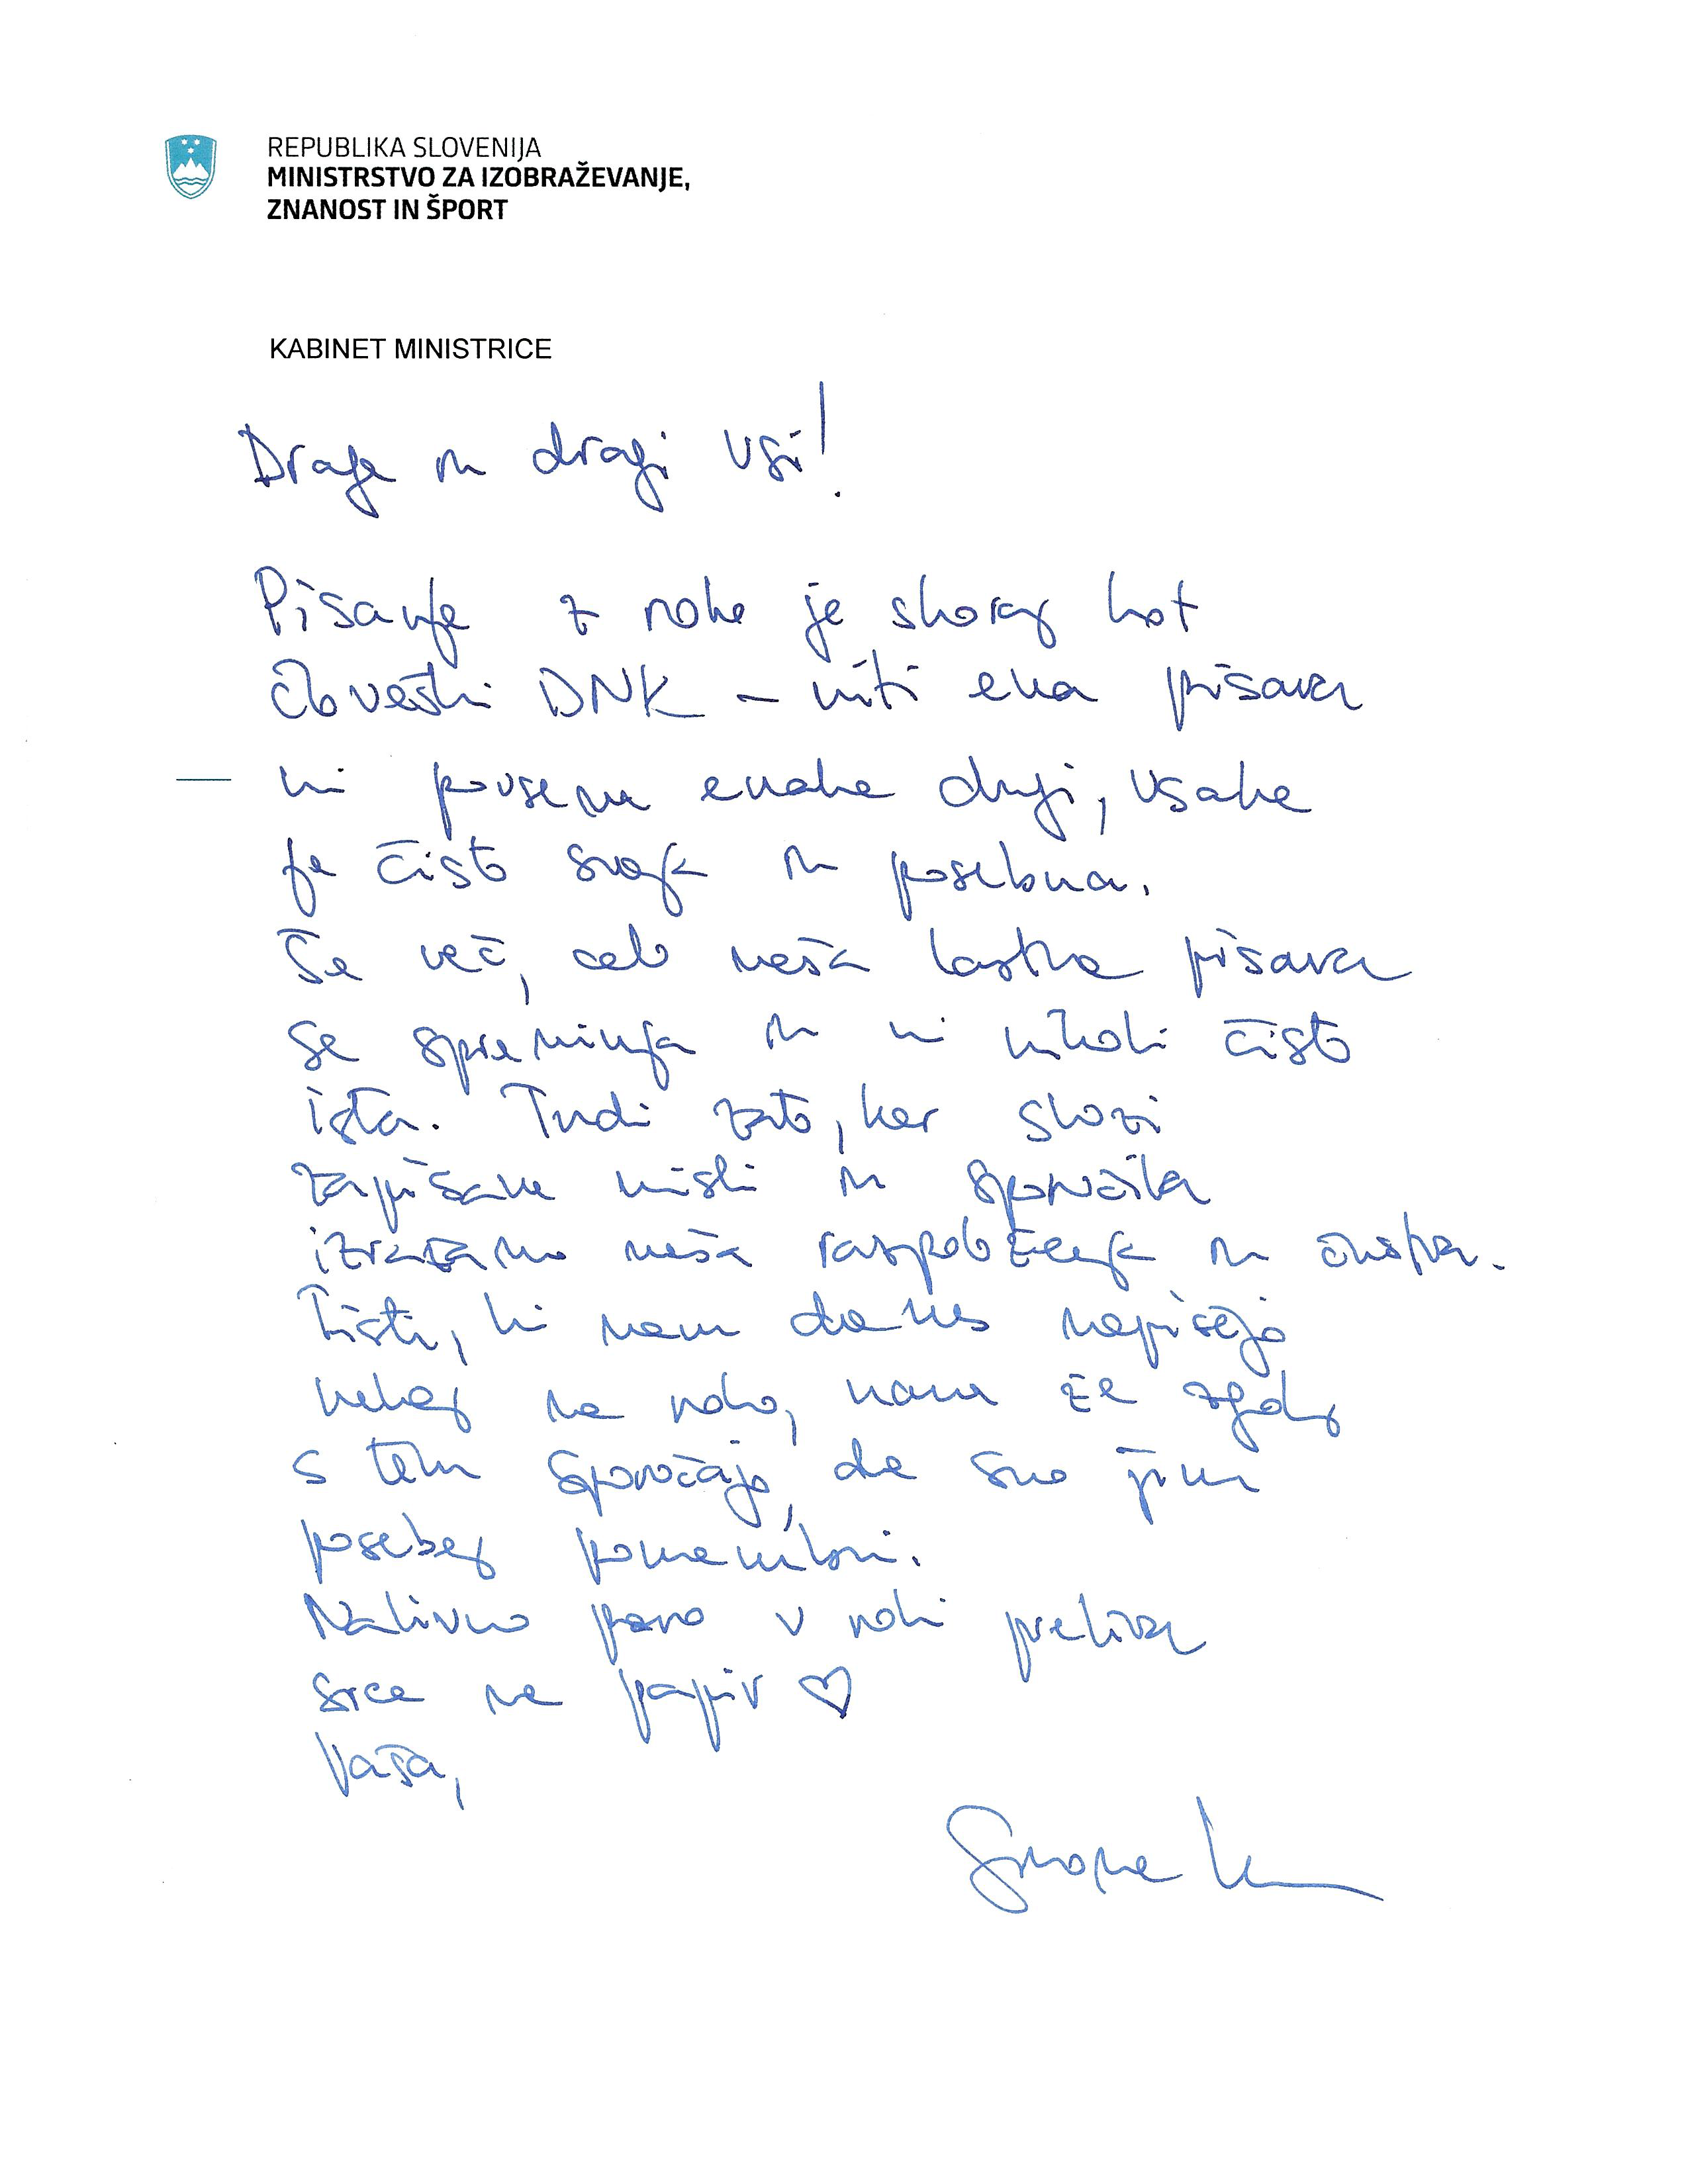 REPUBLIKA SLOVENIJA
MINISTRSTVO ZA IZOBRAŽEVANJE,
ZNANOST IN ŠPORT
KABINET MINISTRICE
Drage in dragi vsi!
Pisanje z roko je skoraj kot
človeški DNK – niti ena pisava
ni povsem enaka drugi, vsaka
je čisto svoja in posebna.
Še več, celo naša lastna pisava
se spreminja in ni nikoli čisto
ista. Tudi zato, ker skozi
zapisane misli in sporočila
izražamo naša razpoloženja in čustva.
Tisti, ki nam danes napišejo
nekaj na roko, nam že zgolj
s tem sporočajo, da smo jim
posebej pomembni.
Nalivno pero v roki preliva
srce na papir ♡
Vaša,
Simona